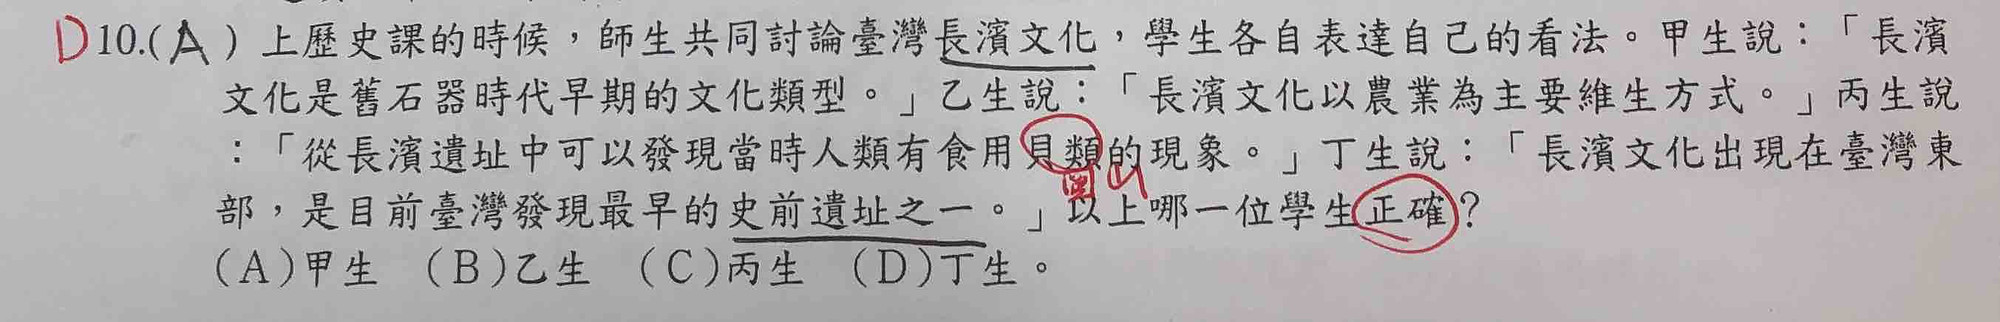 D10.(A)上歷史課的時候，師生共同討論臺灣長濱文化，學生各自表達自己的看法。甲生說：「長濱
文化是舊石器時代早期的文化類型。」乙生說：「長濱文化以農業為主要維生方式。」丙生說
：「從長濱遺址中可以發現當時人類有食用貝類的現象。」丁生說：「長濱文化出現在臺灣東
圓山
部，是目前臺灣發現最早的史前遺址之一。」以上哪一位學生正確？
(A)甲生　(B)乙生　(C)丙生　(D)丁生。